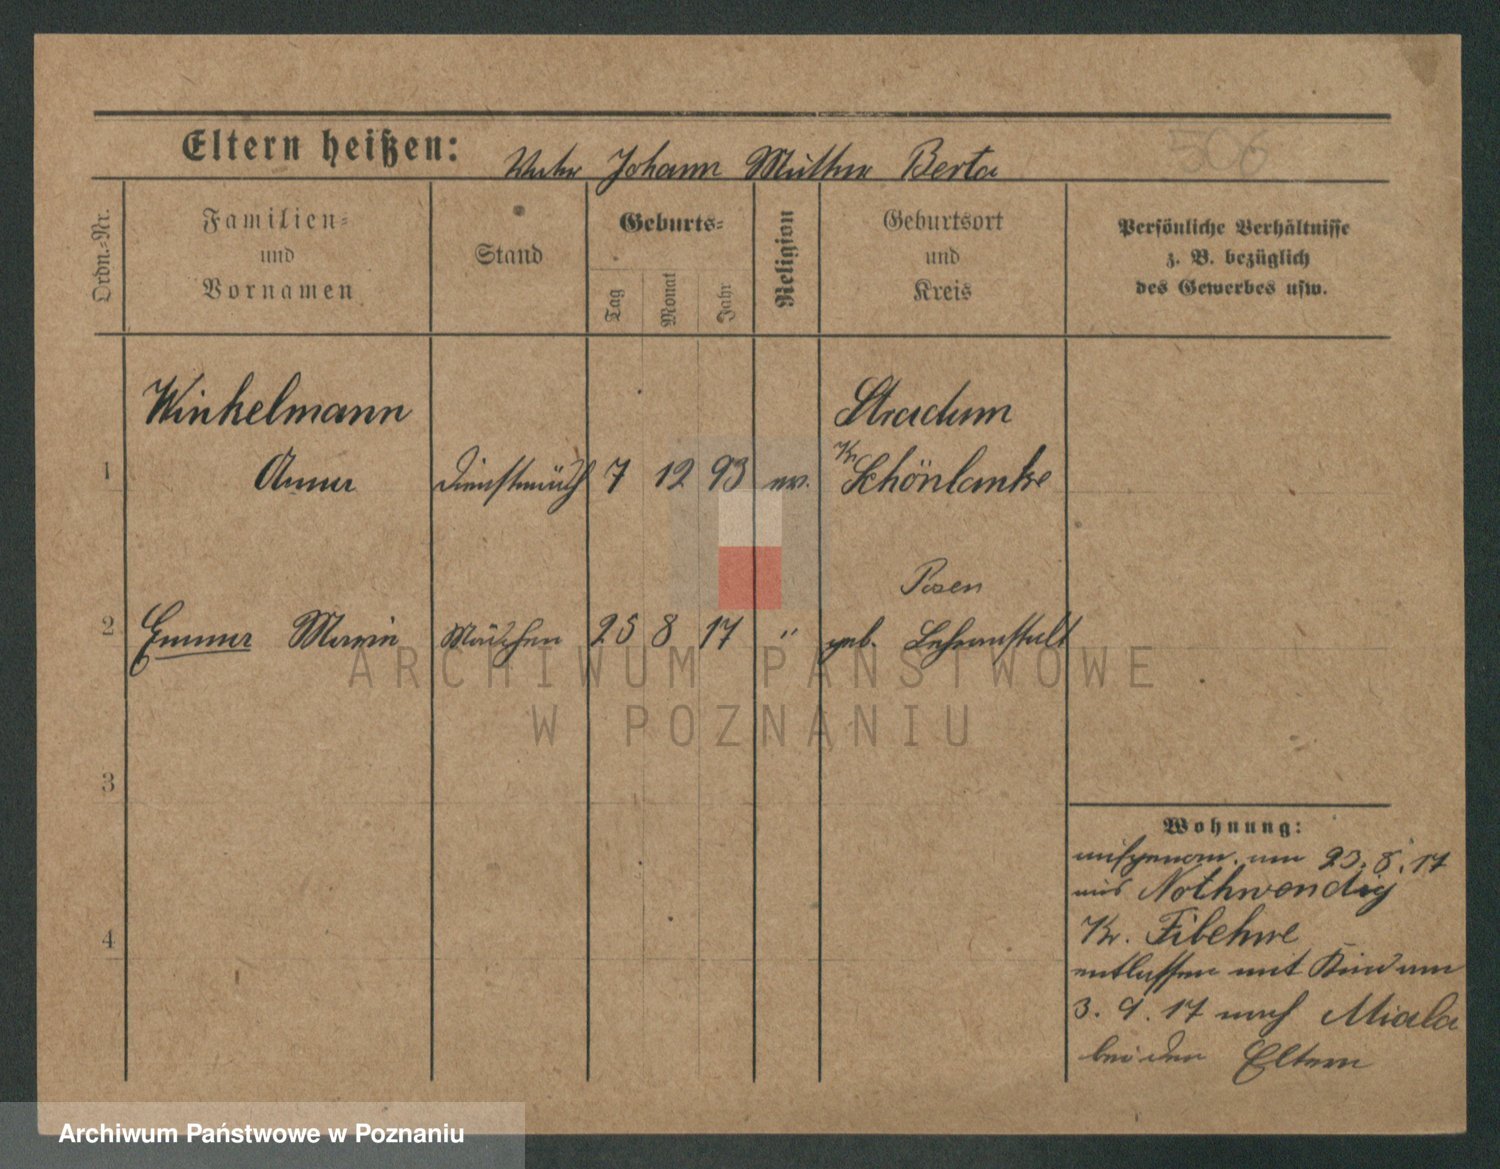 506
Eltern heißen: Vater Johann Mutter Berta
Ordn.-Nr.
Familien-
und
Vornamen
Stand
Geburts-
Tag
Monat
Jahr
Religion
Geburtsort
und
Kreis
Persönliche Verhältnisse
z. B. bezüglich
des Gewerbes usw.
Winkelmann
Stradum
1 Anna Dienstmädch 7 12 93 ev. Kr Schönlanke
Posen
2 Emma Marie Mädchen 25 8 17 " geb. Lehranstalt
3
4
Wohnung:
aufgenom. am 23.8.17
aus Nothwendig
Kr. Filehne
entlassen mit Kind am
3. 9. 17 nach Miala
bei den Eltern
ARCHIWUM PAŃSTWOWE
W POZNANIU
Archiwum Państwowe w Poznaniu